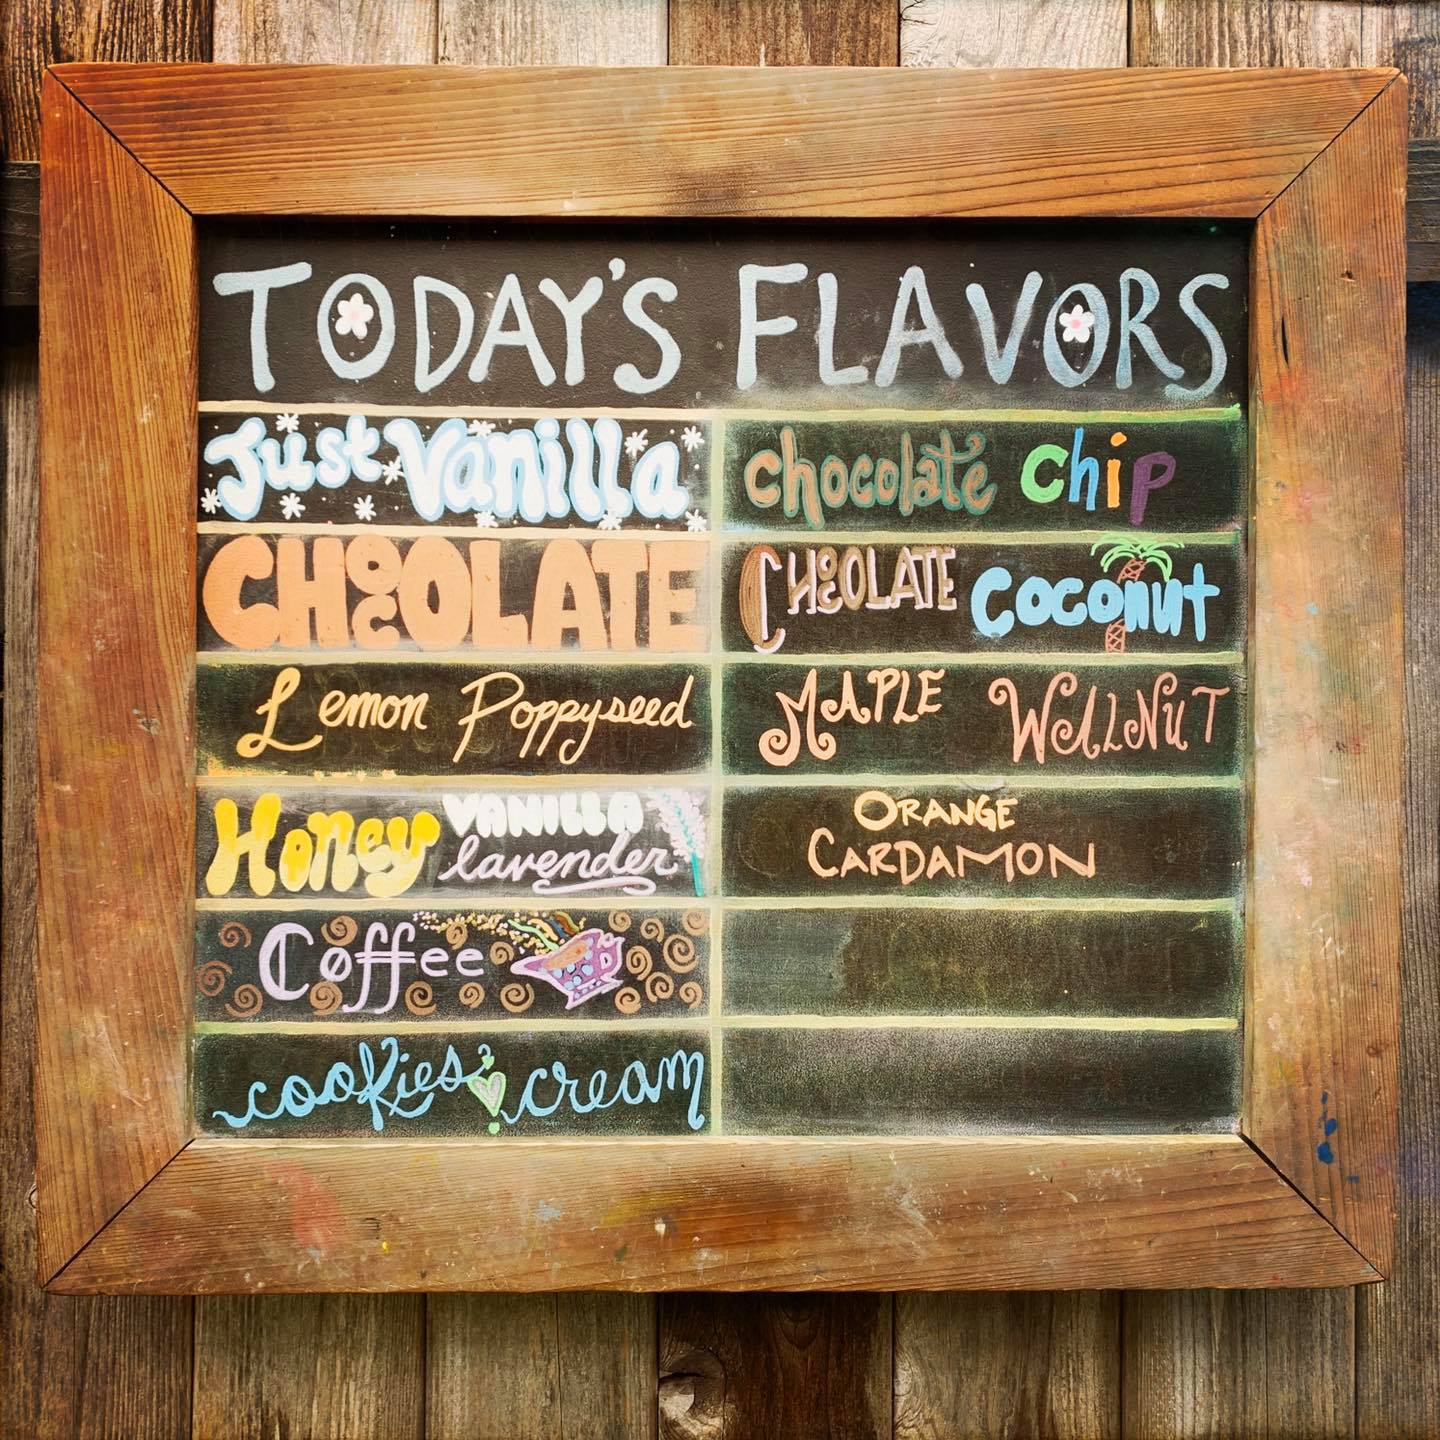 TODAY'S FLAVORS
Just Vanilla
CHOCOLATE
Lemon Poppyseed
Honey VANILLA
lavender
Coffee
cookies cream
chocolate chip
CHOCOLATE Coconut
MAPLE WALNUT
ORANGE
CARDAMON